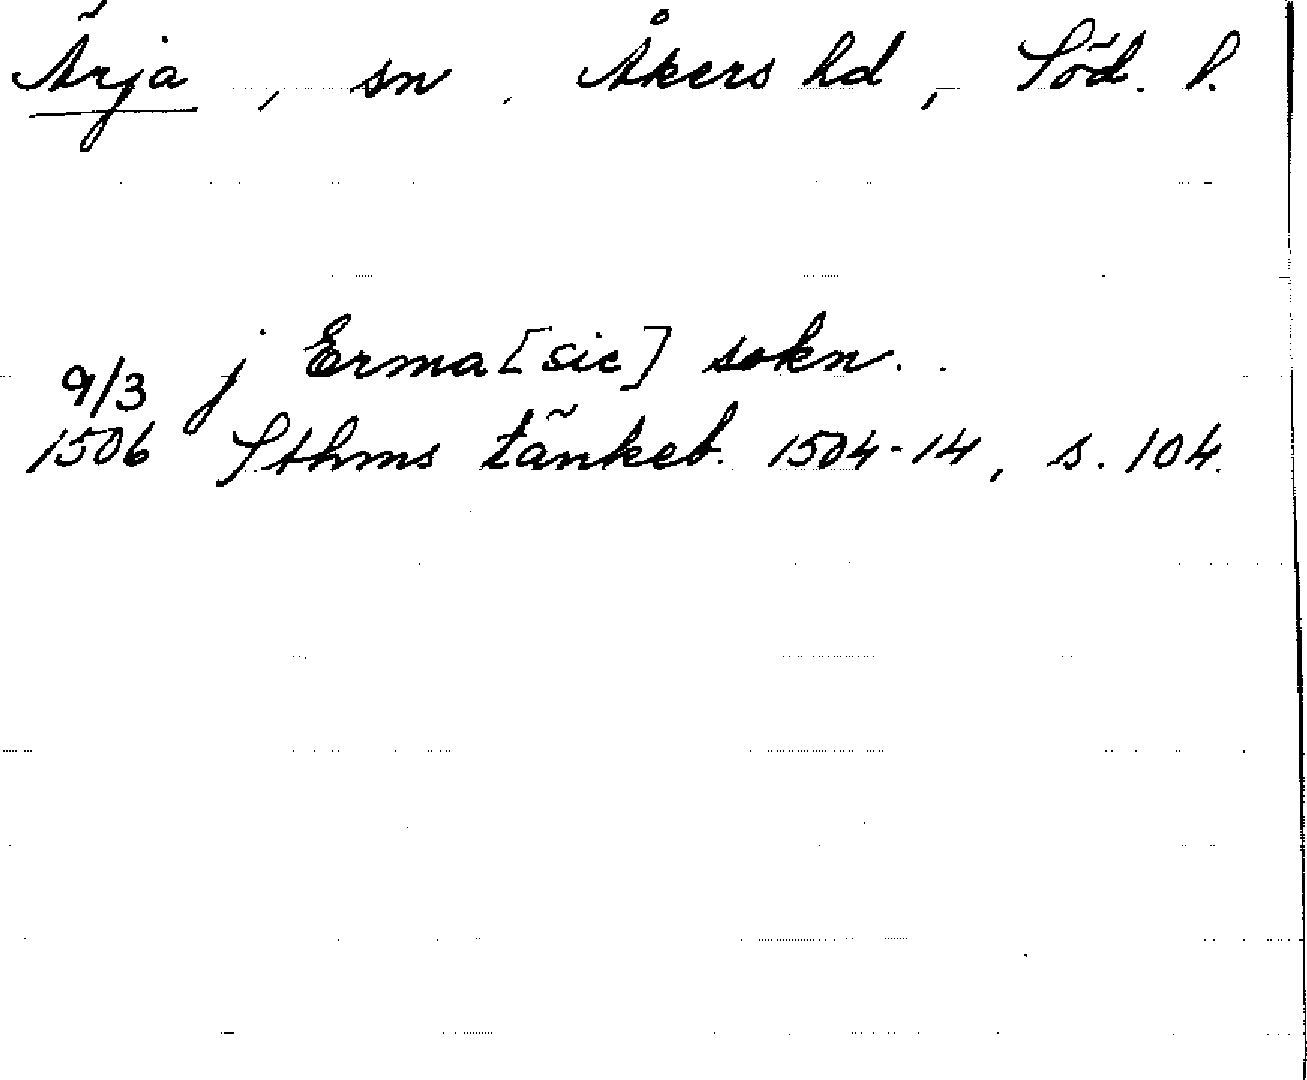 Ärja, sn, Åkers hd, Söd. l.
j Erma [sic] sokn..
9/3
1506 Sthms tänkeb. 1504-14, s. 104.